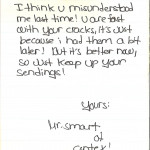 I think u misunderstood
me last time! U are fast
with your cracks, it's just
because i had them a bit
later! But it's better now,
so Just keep up your
sendings!
Yours:
Mr. Smart
of